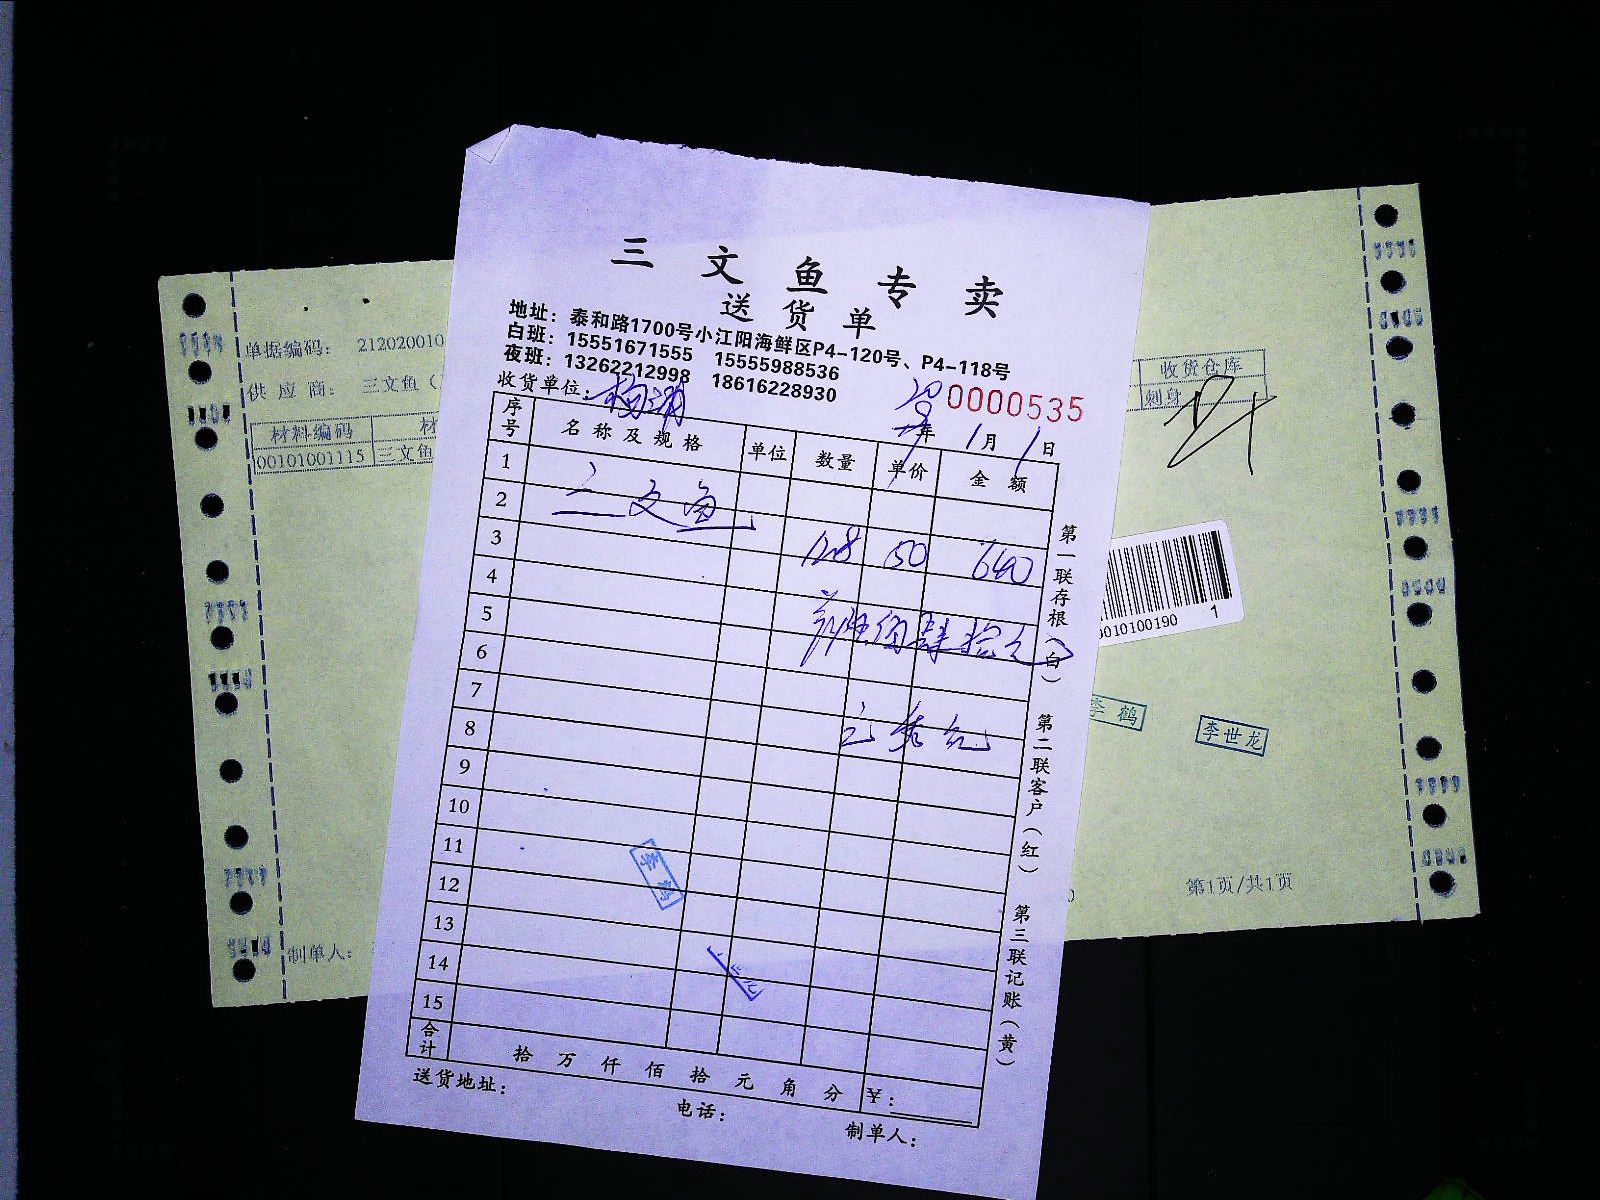 三文鱼专卖
送货单
地址：泰和路1700号小江阳海鲜区P4-120号、P4-118号
白班：15551671555 15555988536
夜班：13262212998 18616228930
收货单位：杨浦
0000535
年 1月1日
序号 名称及规格 单位 数量 单价 金额
1
2 三文鱼
3 12.8 50 640
4
5 肆拾
6
7
8
9
10
11
12
13
14
15
合计 拾 万 仟 佰 拾 元 角 分 ¥：
送货地址：
电话：
制单人：
第一联存根（白） 第二联客户（红） 第三联记账（黄）
李鹤
单据编码： 212020010
供应商： 三文鱼（
材料编码 材
00101001115 三文鱼
收货仓库
刺身
010100190 1
李鹤
李世龙
第1页/共1页
制单人：